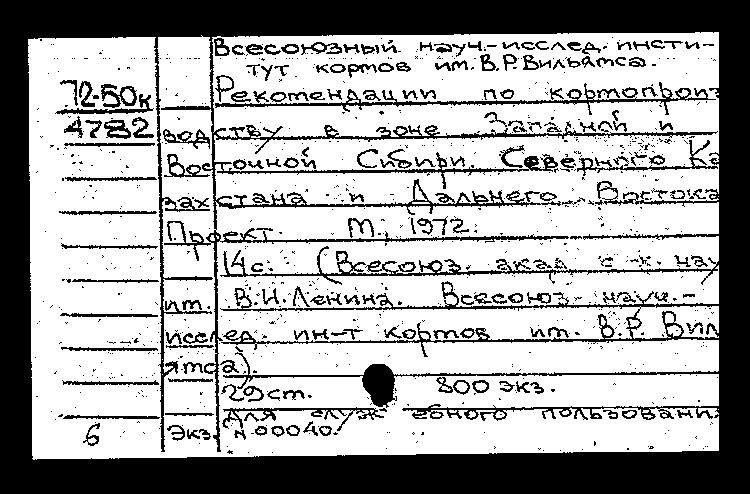 Всесоюзный науч.-исслед. инсти-
тут кормов им. В.Р. Вильямса.
72-50к
Рекомендации по кормопроиз
4782
водству в зоне Западной и
Восточной Сибири, Северного Ка
захстана и Дальнего Востока
Проект. М., 1972.
14 с. (Всесоюз. акад. с.-х. нау
им. В.И. Ленина. Всесоюз. науч.-
исслед. ин-т кормов им. В.Р. Вил
ямса).
29 ст. 800 экз.
Для служебного пользовани
6 Экз. N 00040.